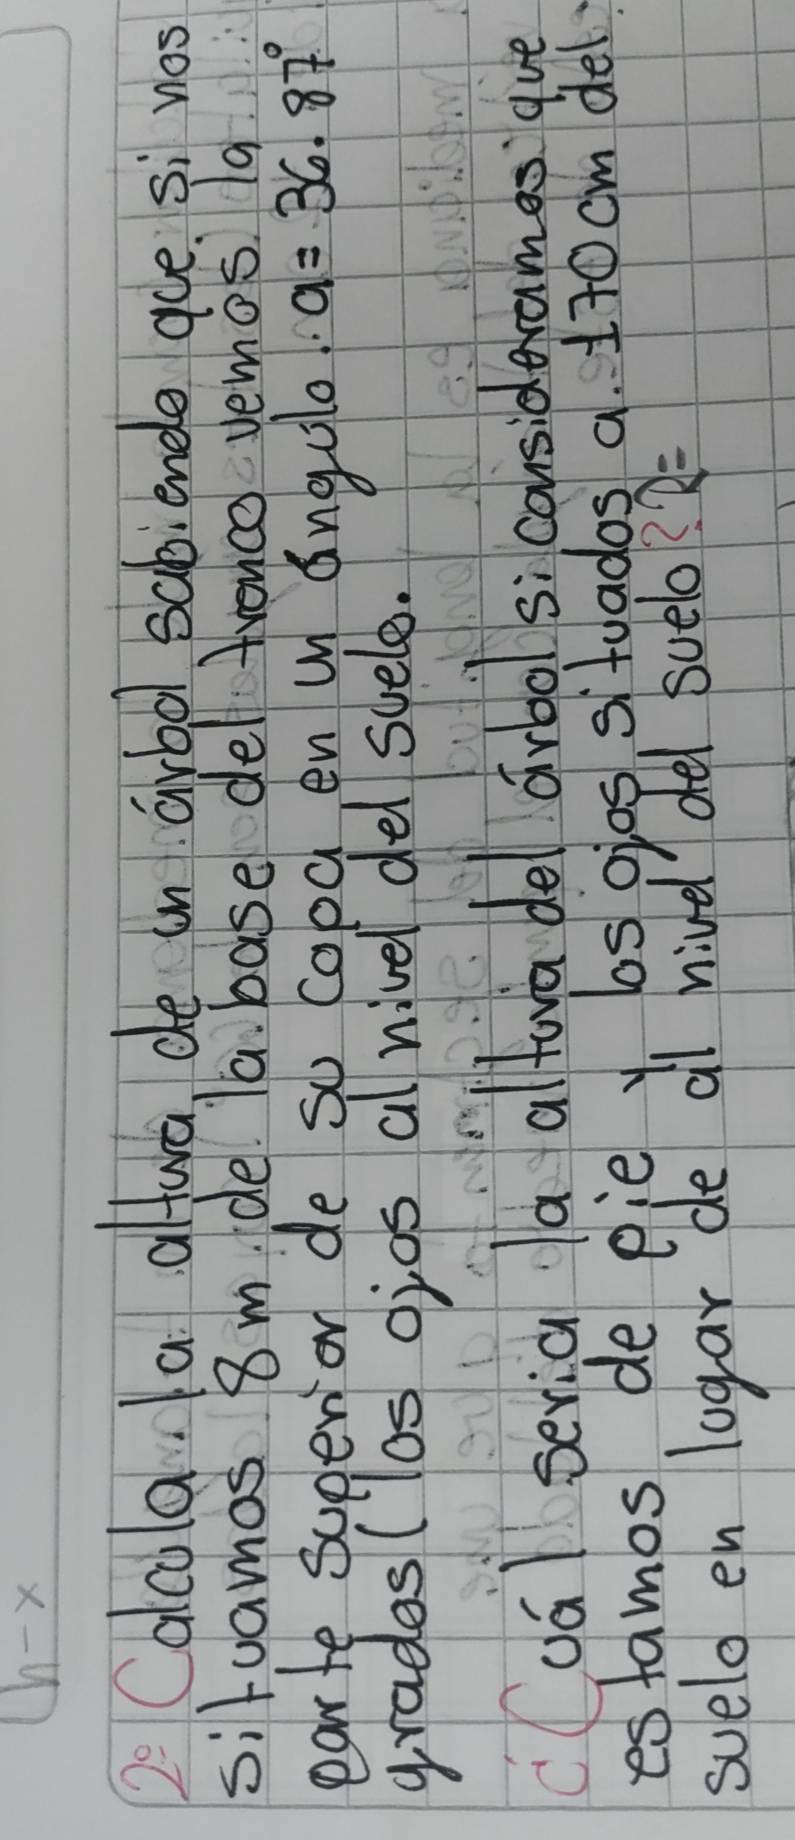 h-x
2º Calcula la altura de un árbol sabiendo que si nos
situamos 8 m de la base del tronco vemos la
parte superior de su copa en un ángulo a = 36.87°
grados (los ojos al nivel del suelo.
¿Cuál seria la altura del árbol si consideramos que
estamos de pie y los ojos situados a 170 cm del
suelo en lugar de al nivel del suelo? R=